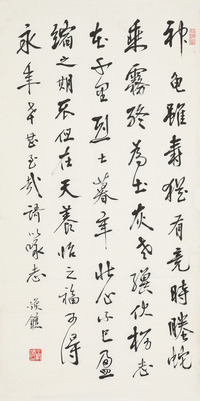 神龜雖壽猶有竟時螣蛇
乘霧終為土灰老驥伏櫪志
在千里烈士暮年壯心不已盈
縮之期不但在天養怡之福可得
永年幸甚至哉歌以詠志